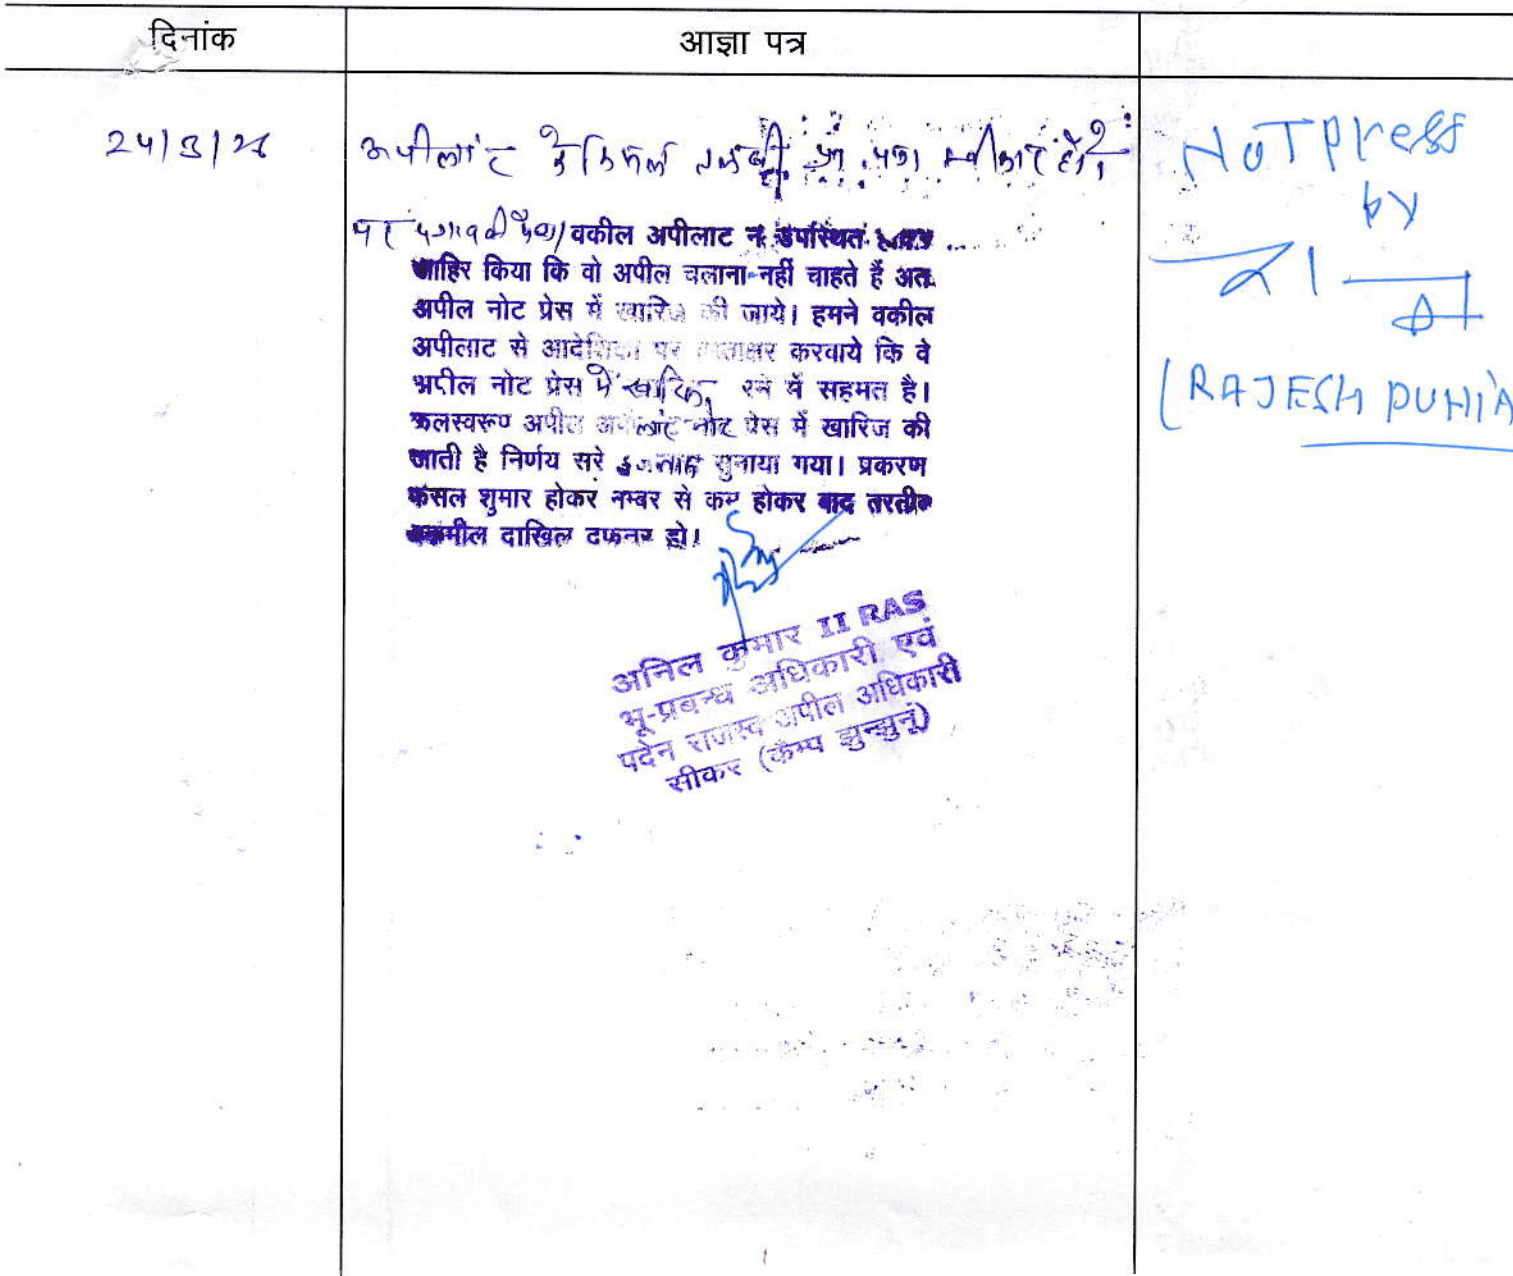 दिनांक
आज्ञा पत्र
24/3/26
अपीलांट के
पर वकील अपीलाट न उपस्थित होकर
जाहिर किया कि वो अपील चलाना नहीं चाहते हैं अतः
अपील नोट प्रेस में खारिज की जाये। हमने वकील
अपीलाट से आदेशिका पर हस्ताक्षर करवाये कि वे
अपील नोट प्रेस में खारिज रने में सहमत है।
फलस्वरूप अपील अपीलांट नोट प्रेस में खारिज की
जाती है निर्णय सरे इजलास सुनाया गया। प्रकरण
फैसल शुमार होकर नम्बर से कम होकर बाद तरतीब
तकमील दाखिल दफ्तर हो।
अनिल कुमार II RAS
भू-प्रबन्ध अधिकारी एवं
पदेन राजस्व अपील अधिकारी
सीकर (कैम्प झुन्झुनूं)
NOT press
by
(RAJESH PUNIA